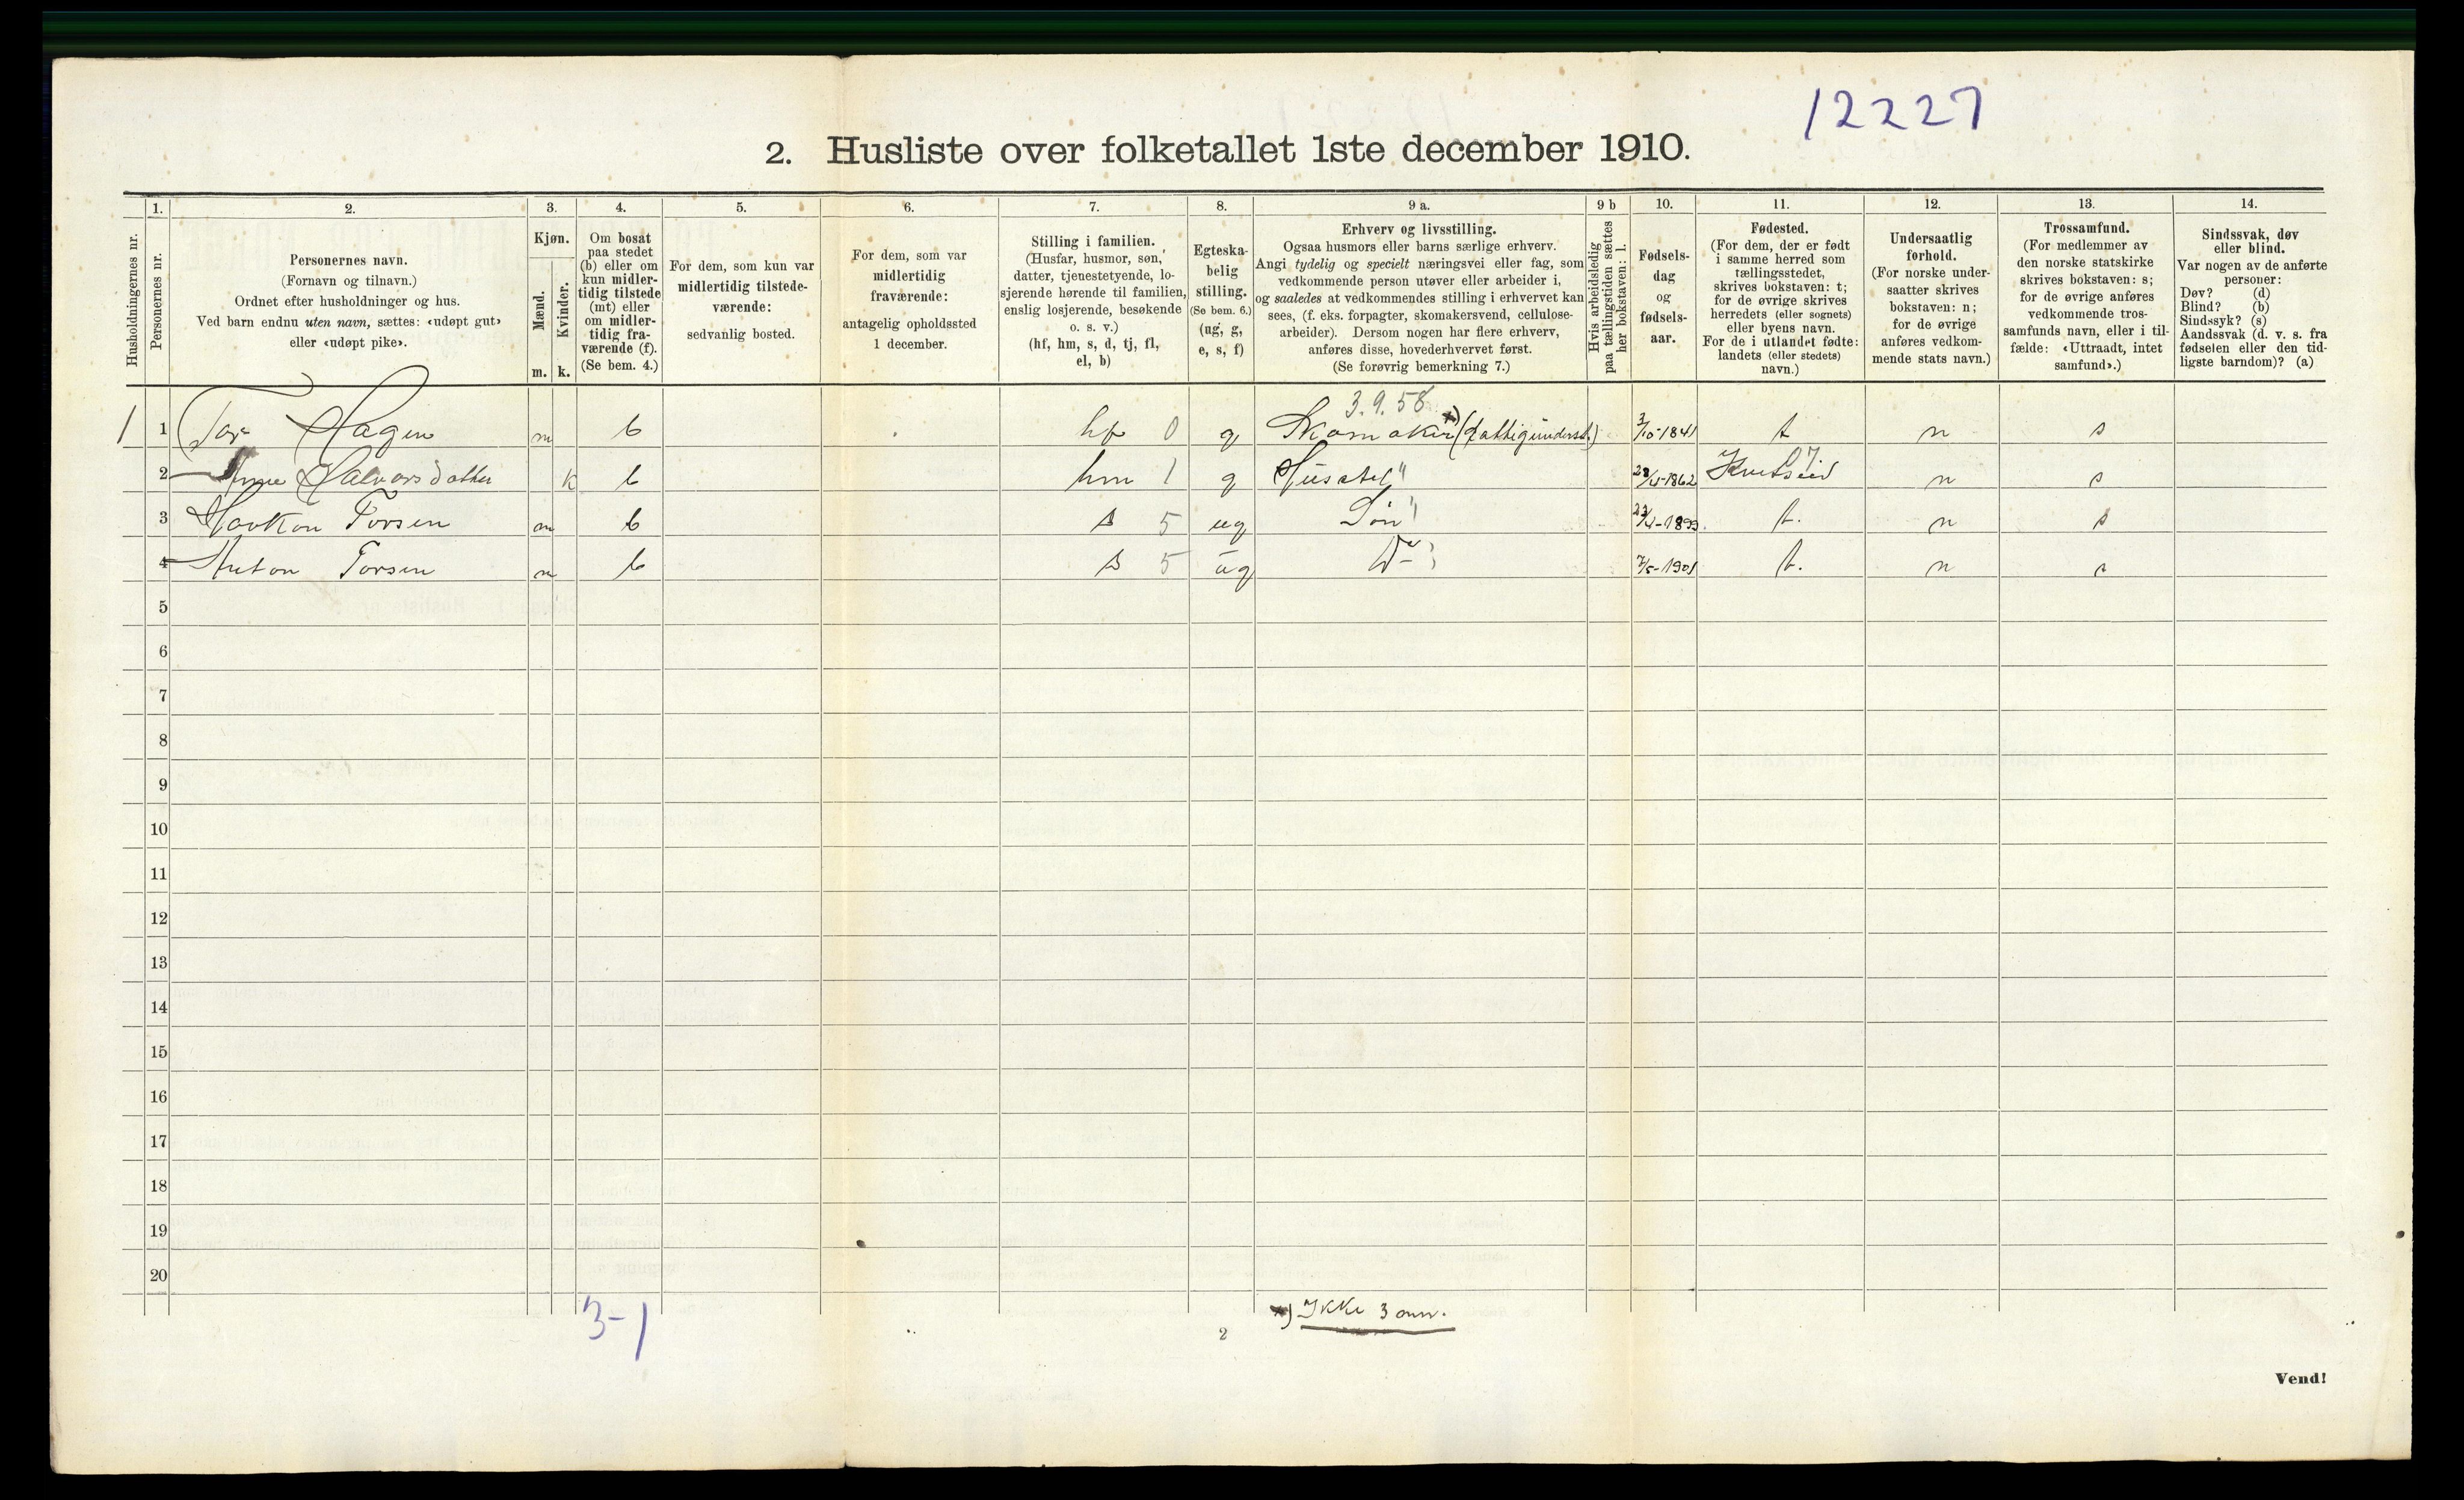 12227
2. Husliste over folketallet 1ste december 1910.
1. 2. 3. 4. 5. 6. 7. 8. 9 a. 9 b 10. 11. 12. 13. 14.
Husholdningernes nr.
Personernes nr.
Personernes navn.
(Fornavn og tilnavn.)
Ordnet efter husholdninger og hus.
Ved barn endnu uten navn, sættes: «udøpt gut»
eller «udøpt pike».
Kjøn.
Mænd.
Kvinder.
m. k.
Om bosat
paa stedet
(b) eller om
kun midler-
tidig tilstede
(mt) eller
om midler-
tidig fra-
værende (f).
(Se bem. 4.)
For dem, som kun var
midlertidig tilstede-
værende:
sedvanlig bosted.
For dem, som var
midlertidig
fraværende:
antagelig opholdssted
1 december.
Stilling i familien.
(Husfar, husmor, søn,
datter, tjenestetyende, lo-
sjerende hørende til familien,
enslig losjerende, besøkende
o. s. v.)
(hf, hm, s, d, tj, fl,
el, b)
Egteska-
belig
stilling.
(Se bem. 6.)
(ug, g,
e, s, f)
Erhverv og livsstilling.
Ogsaa husmors eller barns særlige erhverv.
Angi tydelig og specielt næringsvei eller fag, som
vedkommende person utøver eller arbeider i,
og saaledes at vedkommendes stilling i erhvervet kan
sees, (f. eks. forpagter, skomakersvend, cellulose-
arbeider). Dersom nogen har flere erhverv,
anføres disse, hovederhvervet først.
(Se forøvrig bemerkning 7.)
Hvis arbeidsledig
paa tællingstiden sættes
her bokstaven: l.
Fødsels-
dag
og
fødsels-
aar.
Fødested.
(For dem, der er født
i samme herred som
tællingsstedet,
skrives bokstaven: t;
for de øvrige skrives
herredets (eller sognets)
eller byens navn.
For de i utlandet fødte:
landets (eller stedets)
navn.)
Undersaatlig
forhold.
(For norske under-
saatter skrives
bokstaven: n;
for de øvrige
anføres vedkom-
mende stats navn.)
Trossamfund.
(For medlemmer av
den norske statskirke
skrives bokstaven: s;
for de øvrige anføres
vedkommende tros-
samfunds navn, eller i til-
fælde: «Uttraadt, intet
samfund».)
Sindssvak, døv
eller blind.
Var nogen av de anførte
personer:
Døv? (d)
Blind? (b)
Sindssyk? (s)
Aandssvak (d. v. s. fra
fødselen eller den tid-
ligste barndom)? (a)
3.9.58
1 1 Tor Hagen m b hf 0 g Skomaker x) (fattigunderst.) 3/10-1841 t n s
2 Anne Halvorsdatter k b hm 1 g Husstel " 1862 Kvitseid n s
3 Haakon Torsen m b s 5 ug Søn " 1899 t. n s
4 Anton Torsen m b s 5 ug Do 7/5-1901 t. n s
5
6
7
8
9
10
11
12
13
14
15
16
17
18
19
20
3-1
x) Ikke 3 ann.
2
Vend!